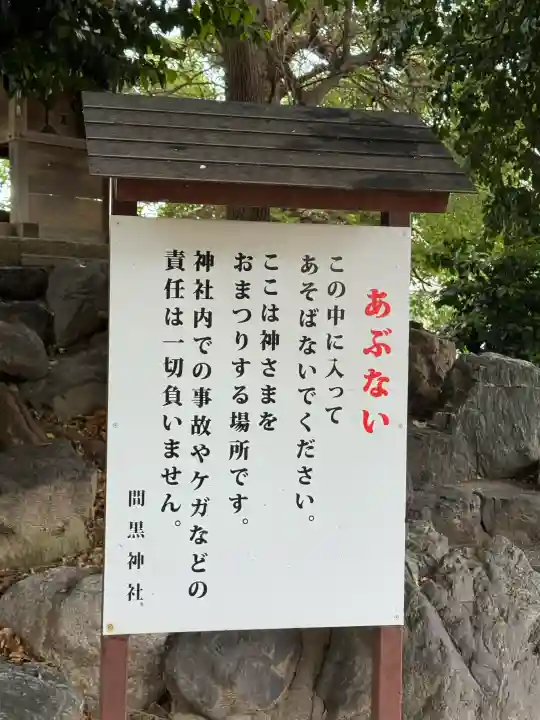 あぶない
この中に入って
あそばないでください。
ここは神さまを
おまつりする場所です。
神社内での事故やケガなどの
責任は一切負いません。
間黒神社